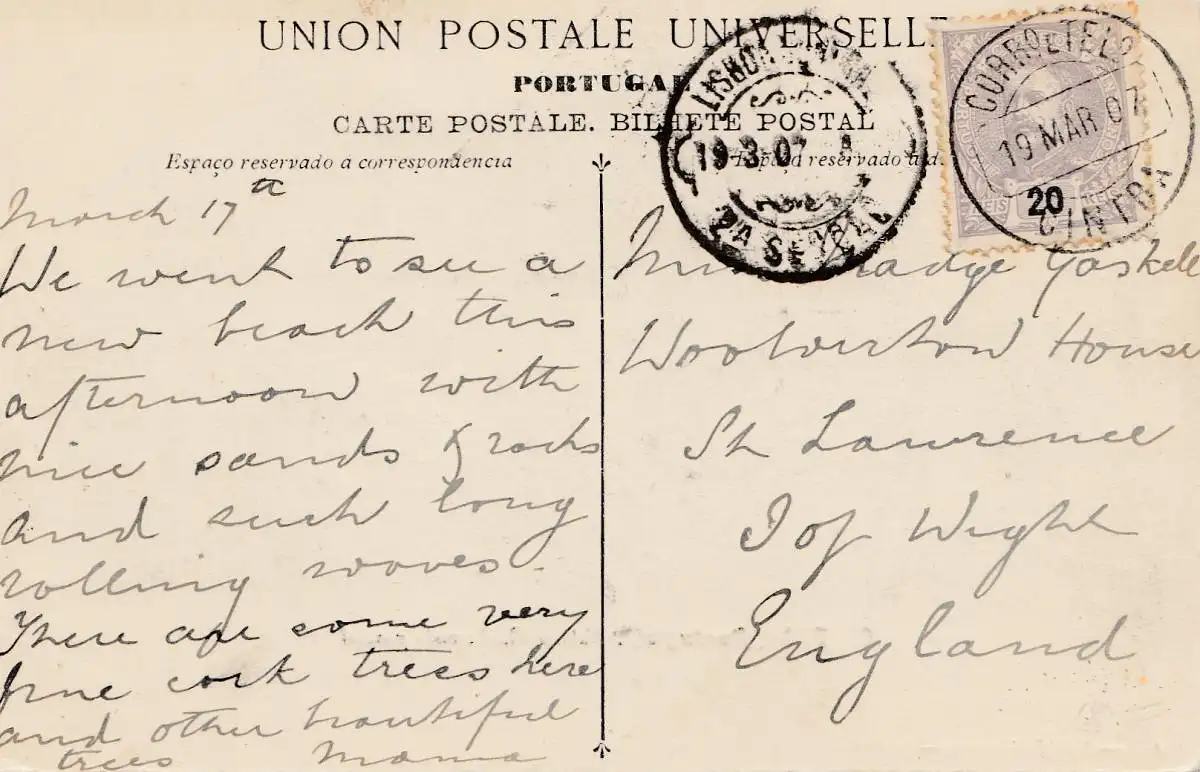 UNION POSTALE UNIVERSELLE
PORTUGAL
CARTE POSTALE. BILHETE POSTAL
Espaço reservado a correspondencia
Espaço reservado a
LISBOA CENTRAL
19.3.07
2A SECÇÃO
CORRO E TELO
19 MAR 07
CINTRA
20
REIS
March 17th
We went to see a
new beach this
afternoon with
nice sands & rocks
and such long
rolling waves.
There are some very
fine cork trees here
and other beautiful
trees Mama
Miss Madge Gaskell
Woolverton House
St Lawrence
I of Wight
England